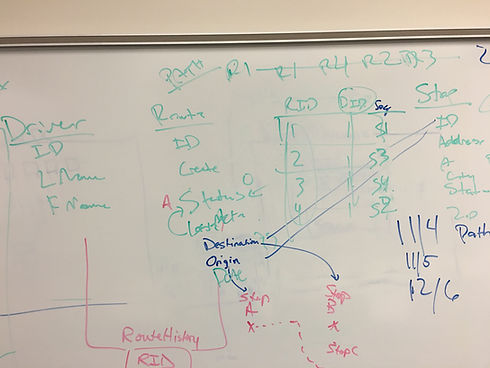 PATH R1 R1 R4 R2 R3
Driver
ID
L Name
F Name
Route
ID
Create
A Status
Destination
Origin
Date
RID DID Seq
1 1 S1
2 1 S3
3 1 S4
4 1 S2
Stop
ID
Address
A
City
State
2.0
Path
11/4
11/5
12/6
Stop
A
X
Stop
B
X
Stop C
RouteHistory
RID